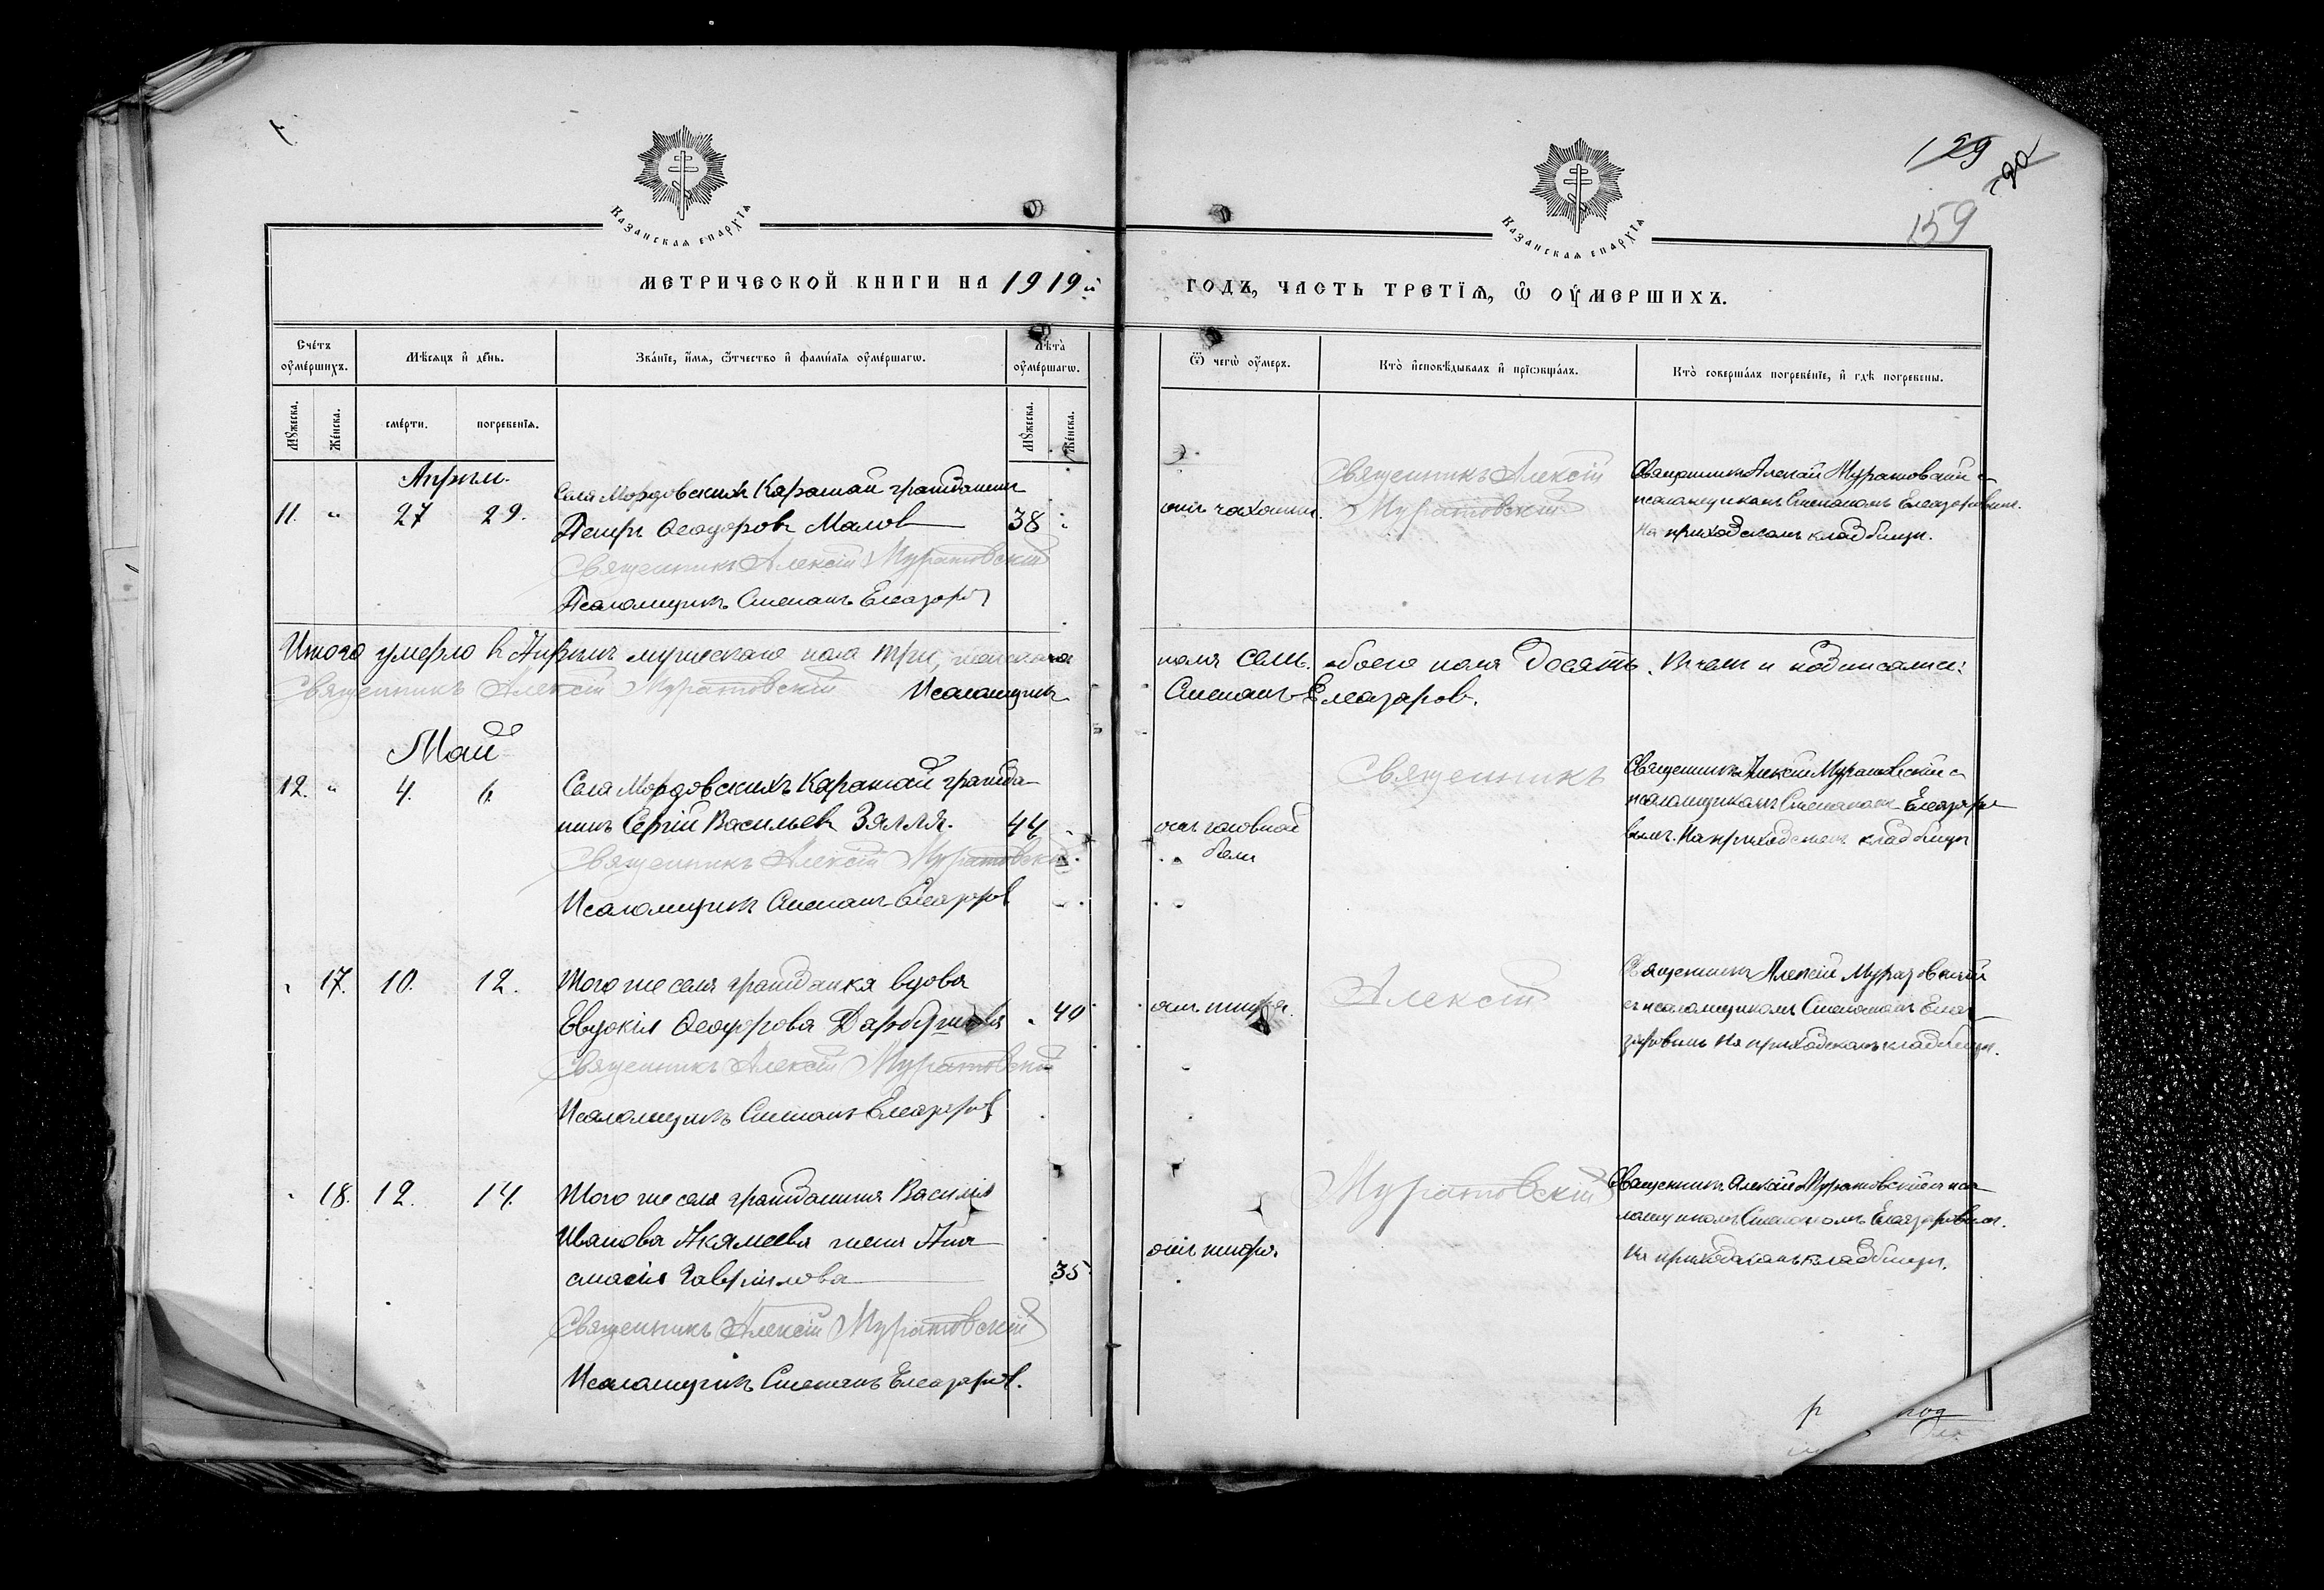 129
159
Казанская епархїѧ
Казанская епархїѧ
МЕТРИЧЕСКОЙ КНИГИ НА 1919й
ГОДЪ, ЧАСТЬ ТРЕТІЯ, Ѡ ОУМЕРШИХЪ.
Счетъ оумершихъ.
Мѣсяцъ и день.
Званїе, имя, отчество и фамилїя оумершагѡ.
Лѣта оумершагѡ.
Ѿ чегѡ оумеръ.
Кто исповѣдывалъ и прїобщалъ.
Кто совершалъ погребенїе, и гдѣ погребены.
Мужеска.
Женска.
смерти.
погребенїя.
Мужеска.
Женска.
Апрѣль.
11. " 27 29.
Села Мордовскихъ Каратай гражданинъ
Петръ Ѳеодоровъ Маловъ 38
Священникъ Алексій Муратовскій
Псаломщикъ Степанъ Елеазаровъ
отъ чахотки.
Священникъ Алексій
Муратовскій
Священникъ Алексій Муратовскій съ
псаломщикомъ Степаномъ Елеазаровымъ.
На приходскомъ кладбищѣ.
Итого умерло въ Апрѣлѣ мужескаго пола три, женскаго
пола семь. обоего пола десять. Въ чемъ и подписались:
Священникъ Алексій Муратовскій Псаломщикъ
Степанъ Елеазаровъ.
Май
12. " 4. 6.
Села Мордовскихъ Каратай гражда-
нинъ Сергій Васильевъ Зялля. 44
Священникъ Алексій Муратовскій
Псаломщикъ Степанъ Елеазаровъ
отъ головной
боли
Священникъ
Священникъ Алексій Муратовскій съ
псаломщикомъ Степаномъ Елеазаро-
вымъ. На приходскомъ кладбищѣ
17. 10. 12.
Того же села гражданка вдова
Евдокія Ѳеодорова 40
Священникъ Алексій Муратовскій
Псаломщикъ Степанъ Елеазаровъ
отъ тифа.
Алексій
Священникъ Алексій Муратовскій
съ псаломщикомъ Степаномъ Елеа-
заровымъ На приходскомъ кладбищѣ.
18. 12. 14.
Того же села гражданина Василія
Иванова Акямеева жена Ана-
стасія Гаврилова 35
Священникъ Алексій Муратовскій
Псаломщикъ Степанъ Елеазаровъ.
отъ тифа.
Муратовскій
Священникъ Алексій Муратовскій съ пса-
ломщикомъ Степаномъ Елеазаровымъ.
На приходскомъ кладбищѣ.